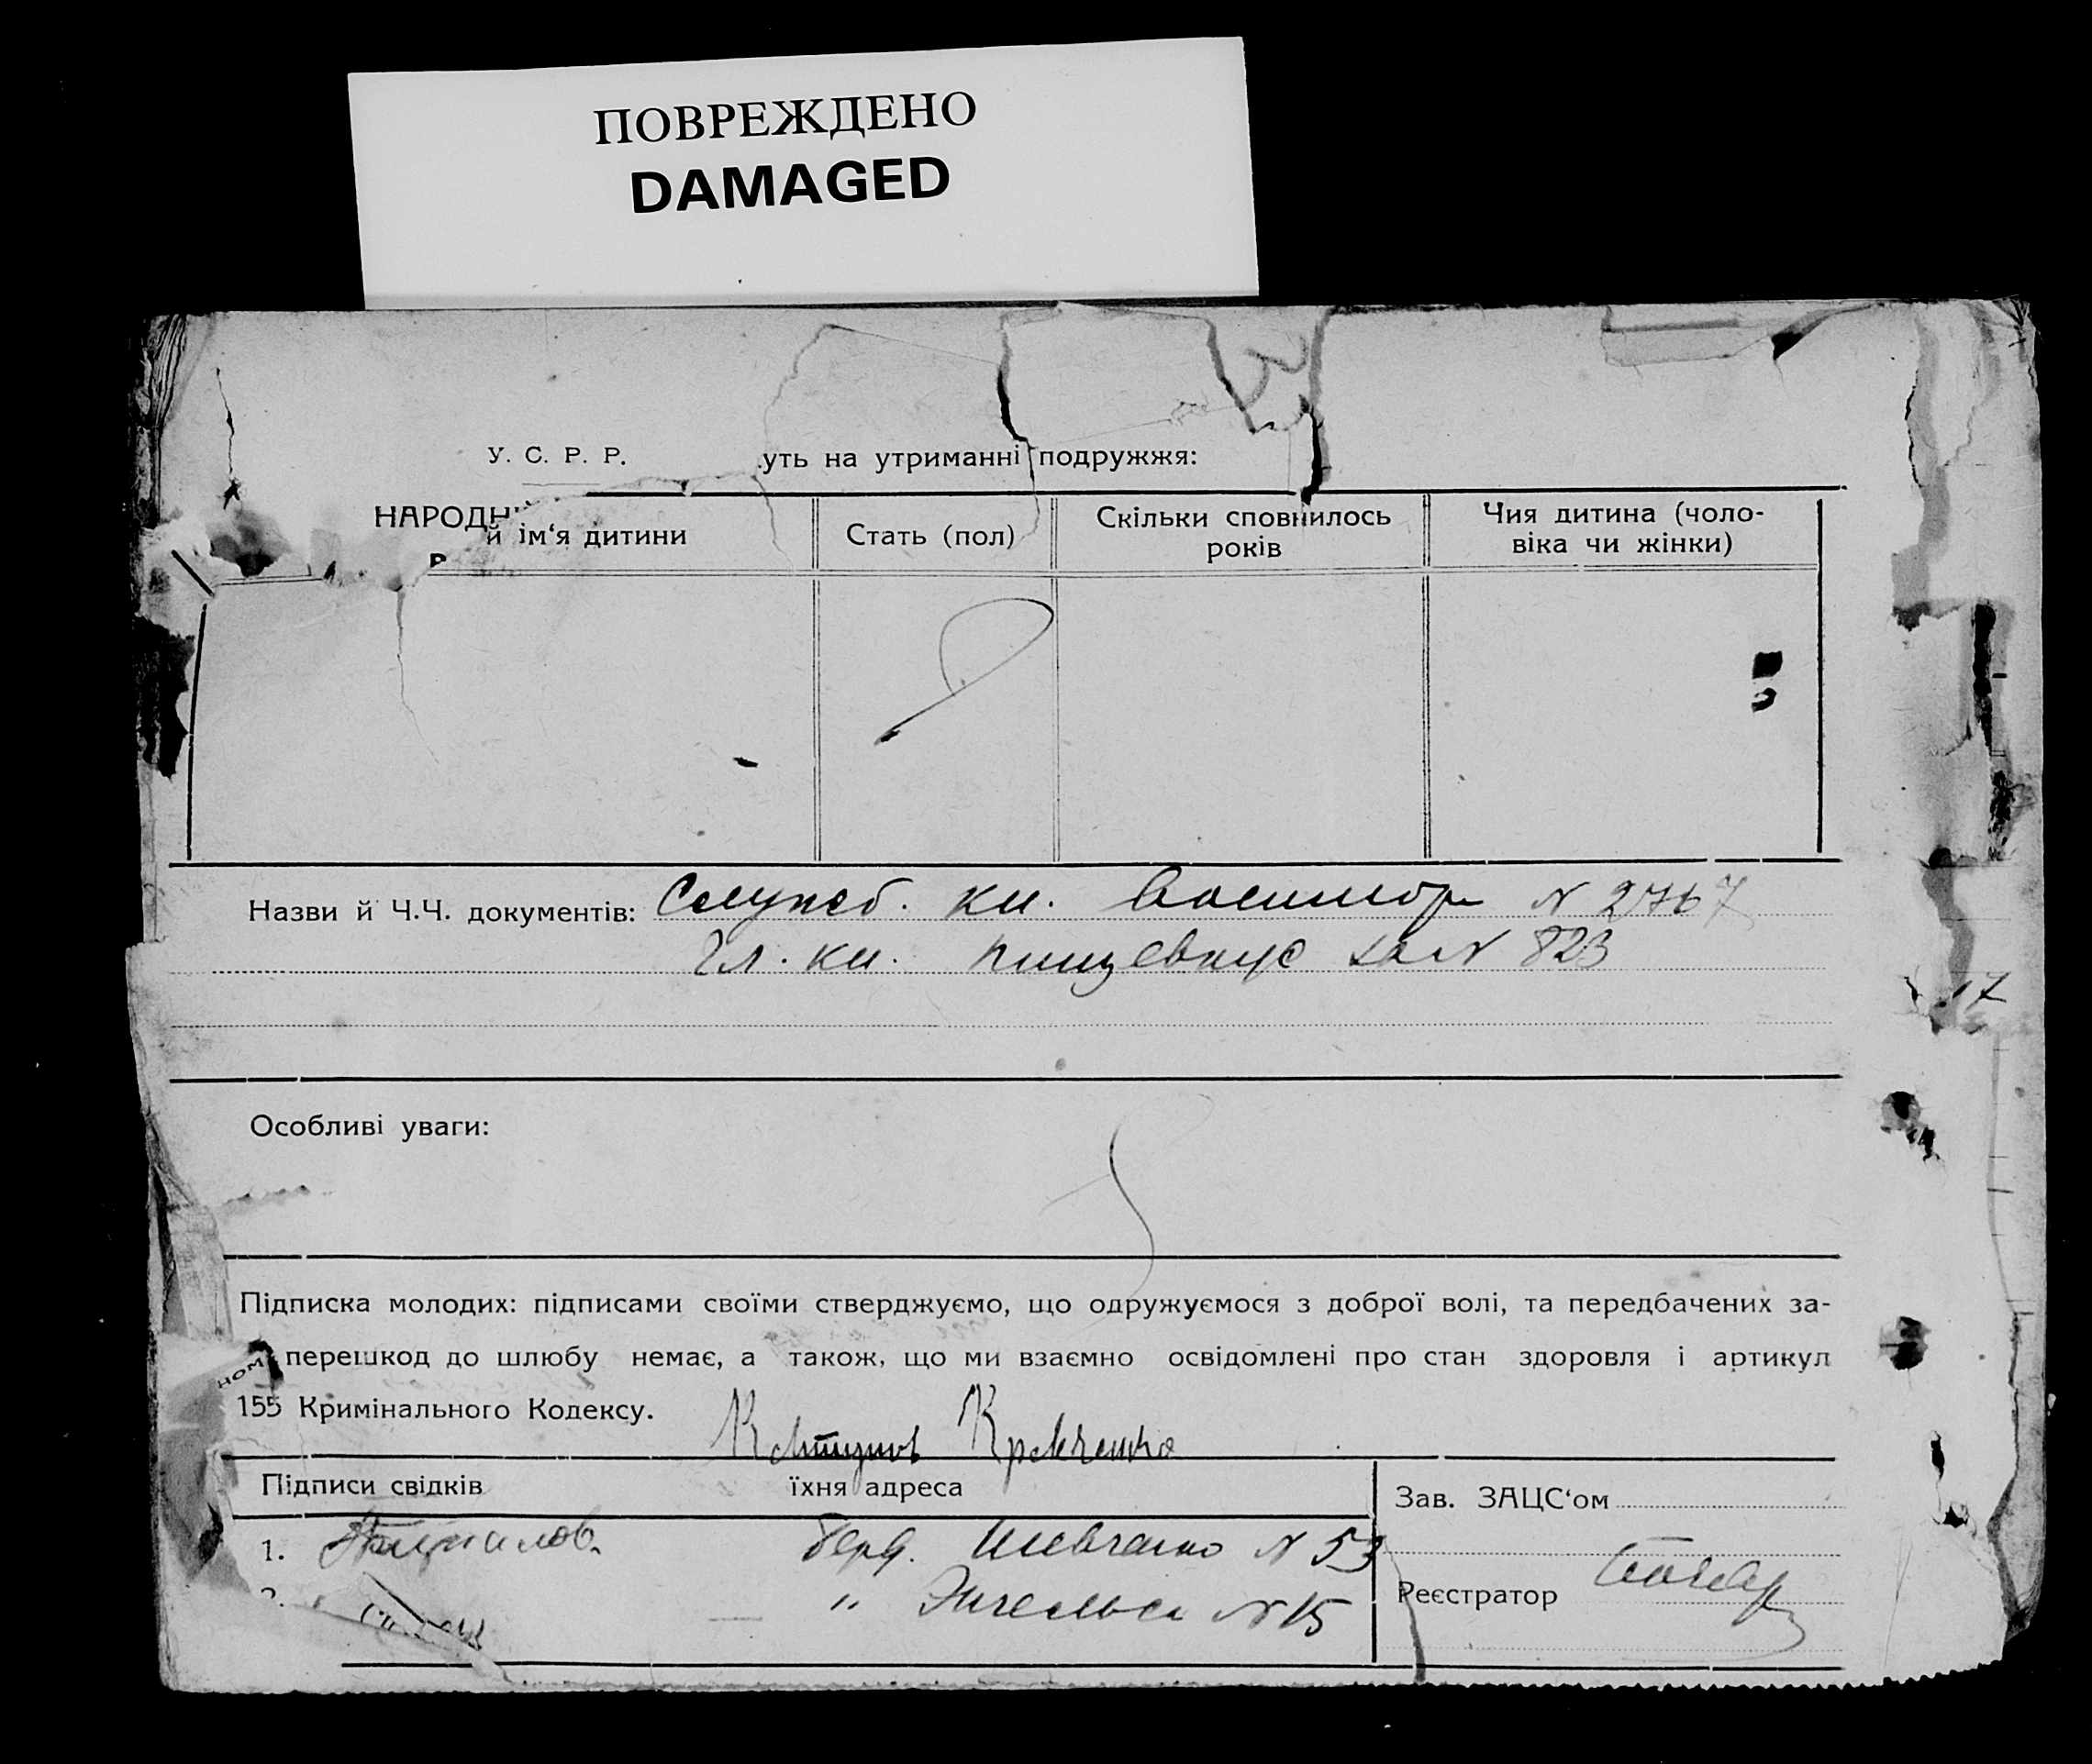 ПОВРЕЖДЕНО
DAMAGED
У. С. Р. Р.
уть на утриманні подружжя:
НАРОДН
й ім‘я дитини
Стать (пол)
Скільки сповнилось
років
Чия дитина (чоло-
віка чи жінки)
Назви й Ч.Ч. документів: Служеб. кн. N 2767
Чл. кн. N 823
Особливі уваги:
Підписка молодих: підписами своїми стверджуємо, що одружуємося з доброї волі, та передбачених за-
ном перешкод до шлюбу немає, а також, що ми взаємно освідомлені про стан здоровля і артикул
155 Кримінального Кодексу.
Кравченко
Підписи свідків їхня адреса
Зав. ЗАЦС‘ом
1. Берд. Шевченко N 53
2. " Энгельса N 15
Реєстратор